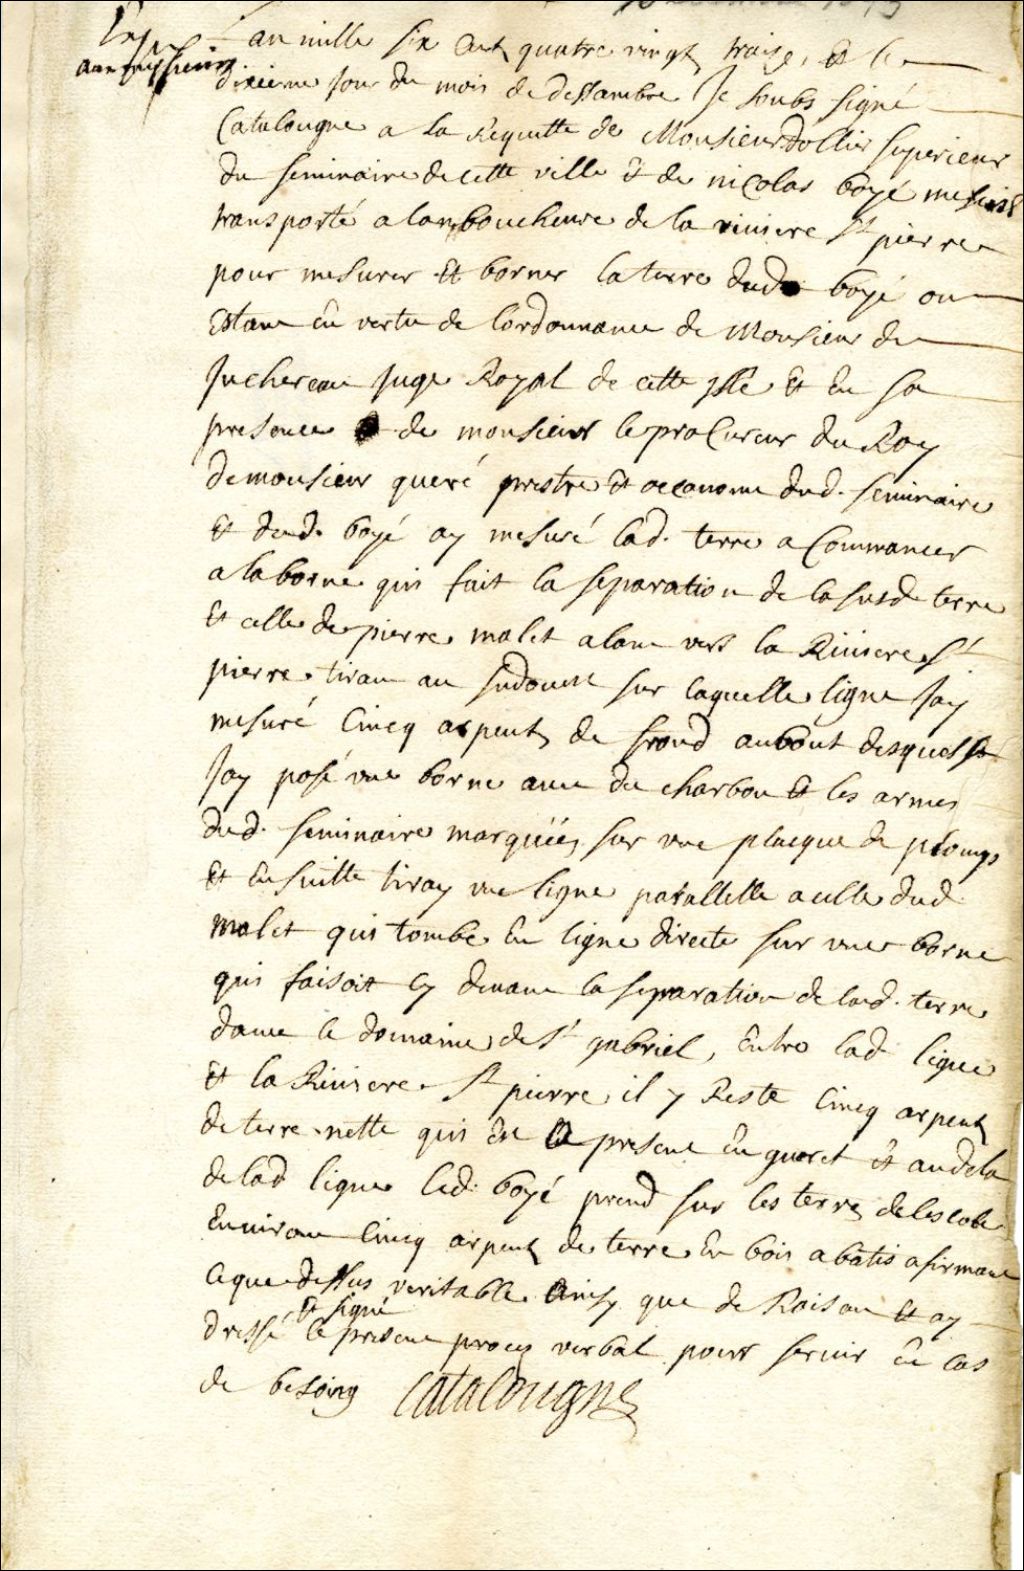 an mille six cent quatre vingt traise, et le
dixieme jour du mois de dessambre Je soubs signé
Catalougne a la Requitte de Monsieur dollier superieur
du seminaire de cette ville & de nicolas boyé me suis
transporté a lamboucheure de la riviere St pierre
pour mesurer et borner la terre dud boyé ou
estant en vertu de lordonnance de Monsieur de
Juchereau Juge Royal de cette isle et en sa
presence de monsieur le procureur du Roy
de monsieur queré prestre et oeconome dud. seminaire
et dud. boyé ay mesuré lad. terre a Commancer
a la borne qui fait la separation de la susd terre
et celle de pierre malet alant vers la Riviere St
pierre tirant au sudouest sur laquelle ligne Jay
mesuré Cincq arpents de frond au bout desquels
Jay posé une borne avec du charbon et les armes
dud. seminaire marquées sur une placque de plomp
et en suitte tiray une ligne parallelle a celle dud
malet qui tombe en ligne directe sur une borne
qui faisoit cy devant la separation de lad. terre
davec le domaine de St gabriel, entre lad ligne
et la Riviere St pierre il y Reste Cincq arpents
de terre nette qui est a present en gueret et audela
de lad ligne led. boyé prend sur les terres delescole
environ Cincq arpents de terre en bois abatis afirmant
ce que dessus veritable ainsy que de Raison et ay
et signé
dressé le present proces verbal pour servir en cas
de besoing Catalougne